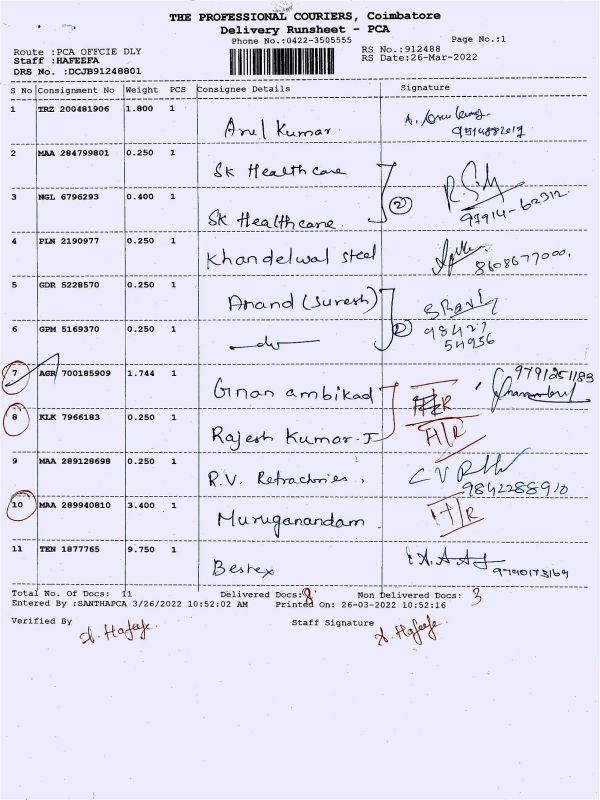 THE PROFESSIONAL COURIERS, Coimbatore
Delivery Runsheet - PCA
Phone No.:0422-3505555 Page No.:1
Route :PCA OFFCIE DLY RS No.:912488
Staff :HAFEEFA RS Date:26-Mar-2022
DRS No. :DCJB91248801
S No Consignment No Weight PCS Consignee Details Signature
1 TRZ 200481906 1.800 1 Arul Kumar
2 MAA 284799801 0.250 1 Sk Healthcare
3 NGL 6796293 0.400 1 Sk Healthcare 2 97914-62312
4 PLN 2190977 0.250 1 Khandelwal steel 8608677000
5 GDR 5228570 0.250 1 Anand (Suresh)
6 GPM 5169370 0.250 1 do 98427
54956
7 AGR 700185909 1.744 1 Gnanambikad H/R 9791251183
8 KLK 7966183 0.250 1 Rajesh Kumar.J H/R
9 MAA 289128698 0.250 1 R.V. Refractories 9842288910
10 MAA 289940810 3.400 1 Muruganandam H/R
11 TEN 1877765 9.750 1 Bestex 9790173169
Total No. Of Docs: 11 Delivered Docs: 8 Non Delivered Docs: 3
Entered By :SANTHAPCA 3/26/2022 10:52:02 AM Printed On: 26-03-2022 10:52:16
Verified By Staff Signature
A. Hafeefe A. Hafeefe